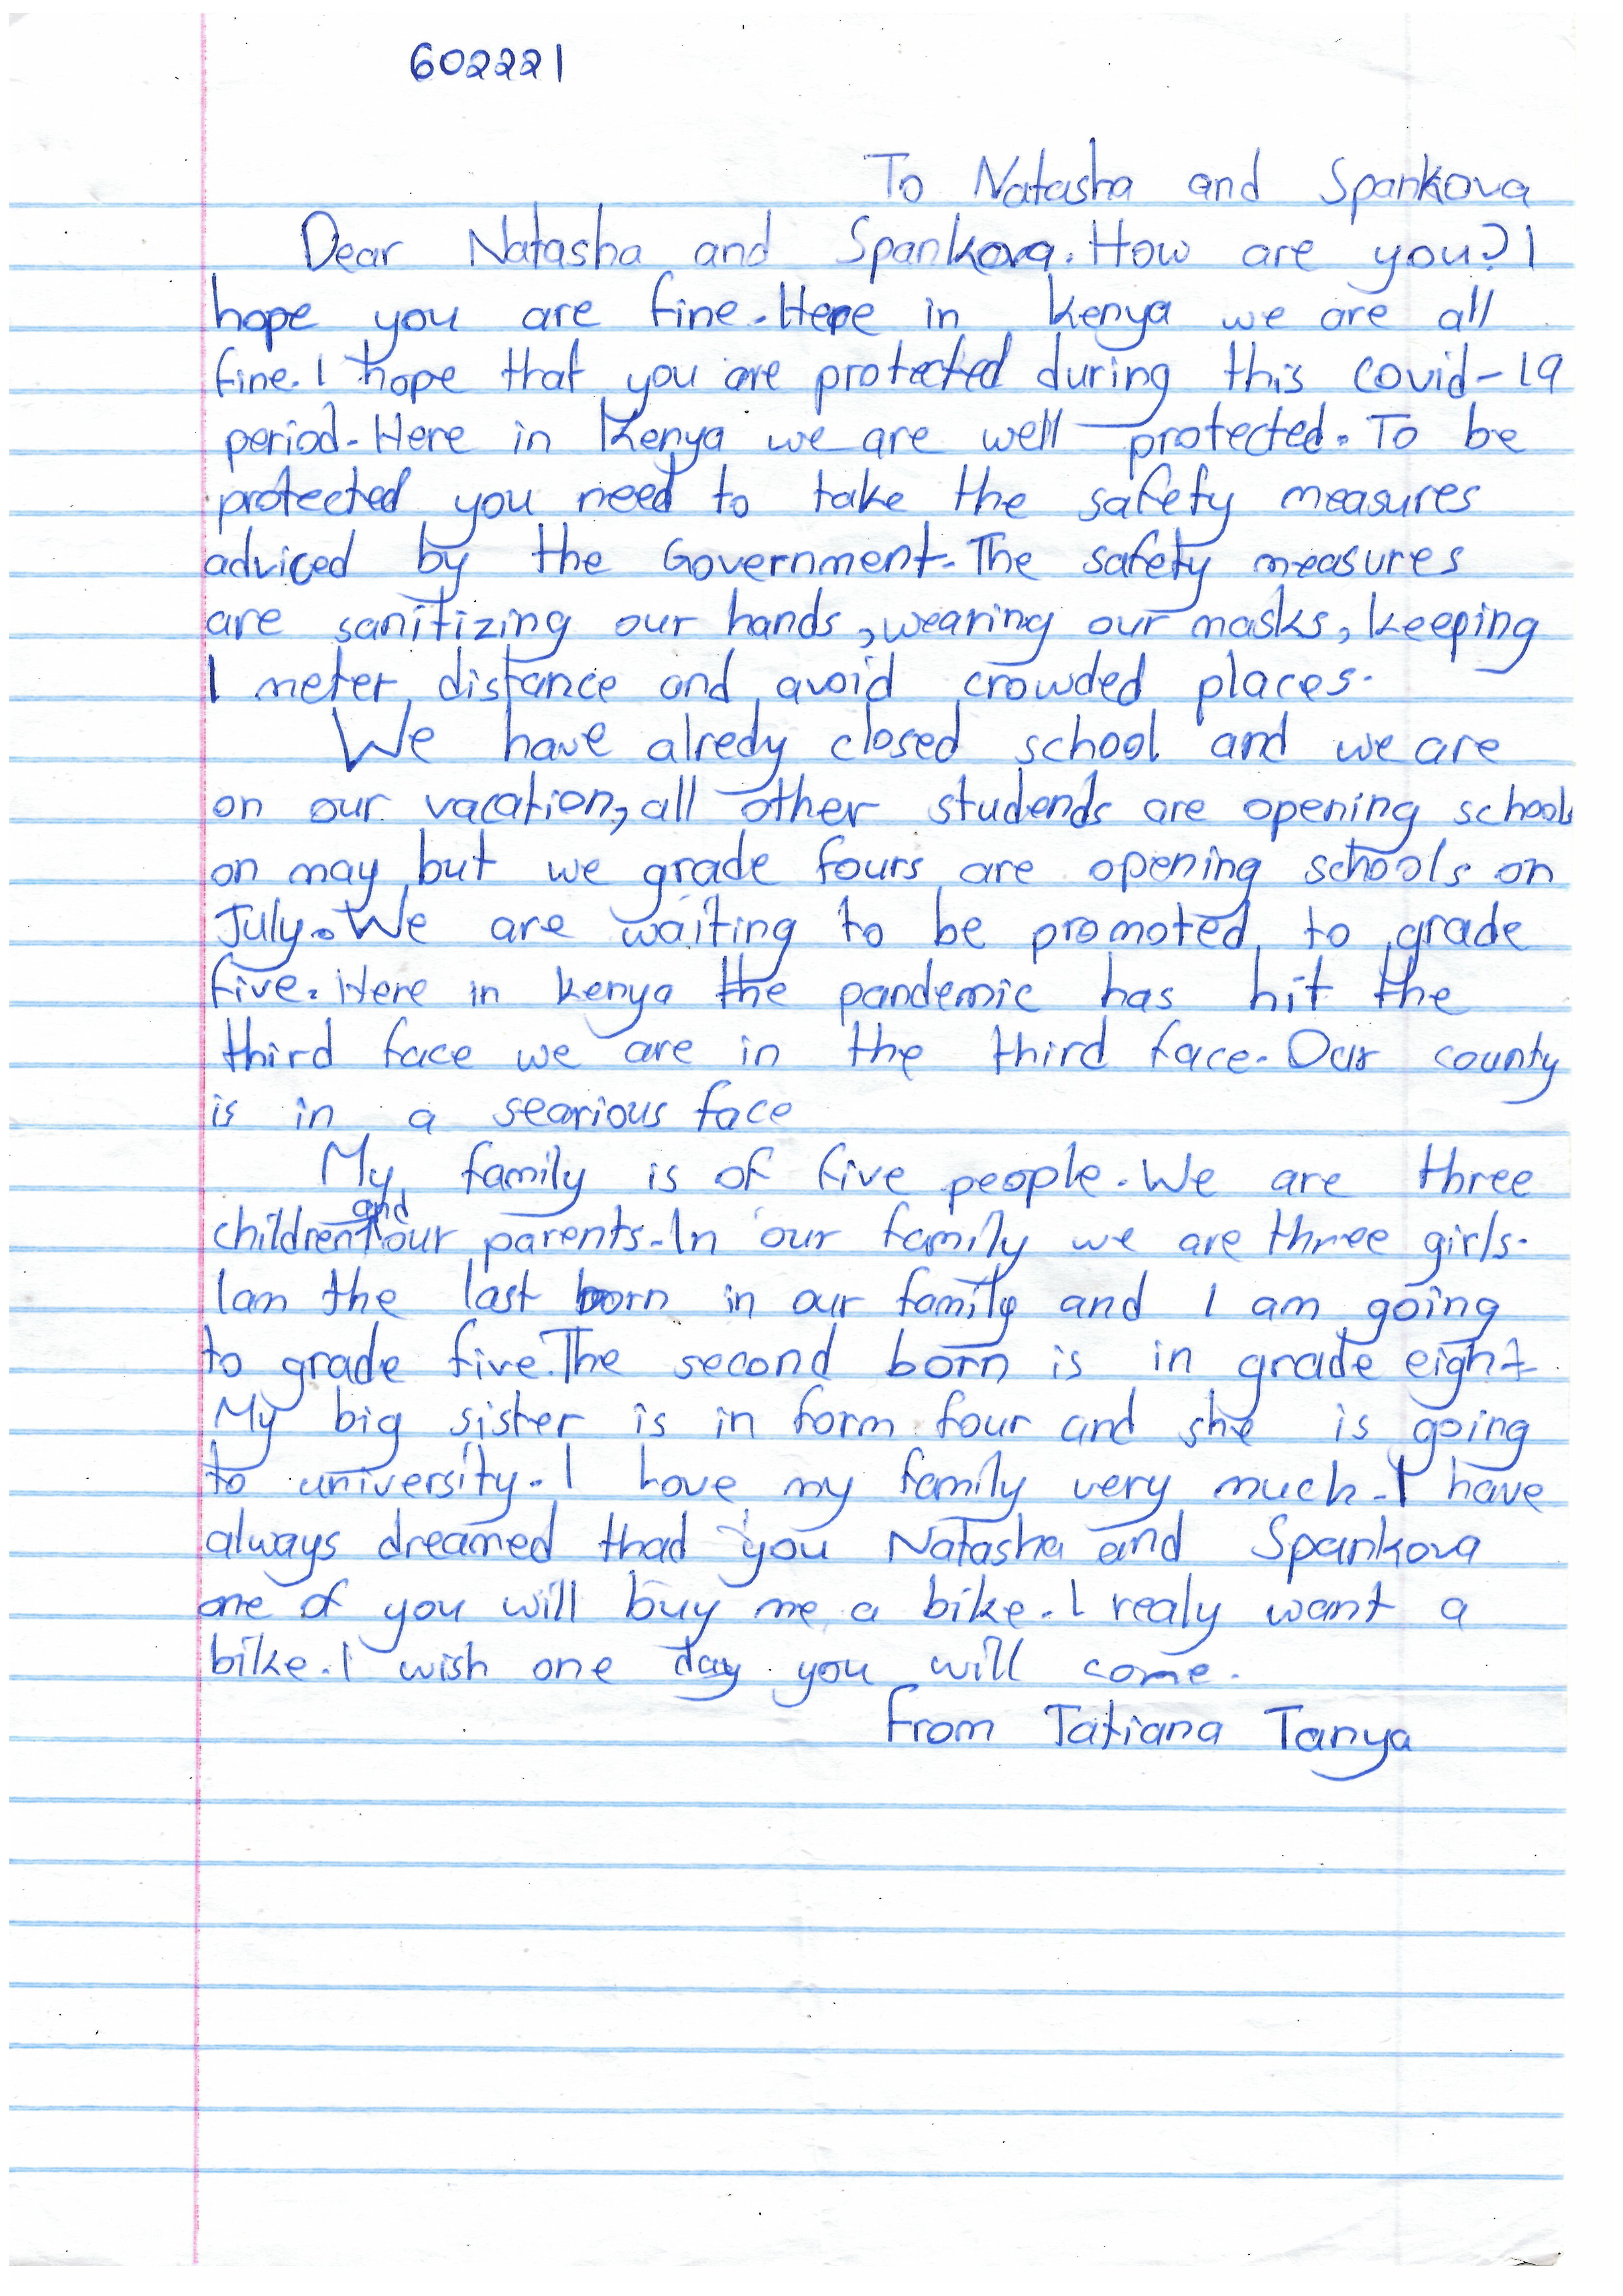 602221
To Natasha and Spankova
Dear Natasha and Spankova. How are you? I
hope you are fine. Here in kenya we are all
fine. I hope that you are protected during this covid-19
period. Here in Kenya we are well protected. To be
protected you need to take the safety measures
adviced by the Government. The safety measures
are sanitizing our hands, wearing our masks, keeping
1 meter distance and avoid crowded places.
We have alredy closed school and we are
on our vacation, all other studends are opening schools
on may but we grade fours are opening schools on
July. We are waiting to be promoted to grade
five. Here in kenya the pandemic has hit the
third face we are in the third face. Our county
is in a searious face
My family is of five people. We are three
children and our parents. In our family we are three girls.
Iam the last born in our family and I am going
to grade five. The second born is in grade eight
My big sister is in form four and she is going
to university. I love my family very much. I have
always dreamed thad you Natasha and Spankova
one of you will buy me a bike. I realy want a
bike. I wish one day you will come.
From Tatiana Tanya